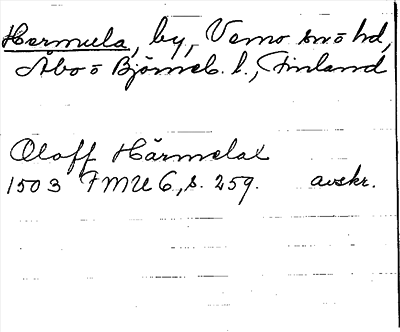 Hermula, by, Vemo sn o hd,
Åbo o Björneb. l., Finland
Oloff Härmelax
1503 FMU 6, s. 259. avskr.